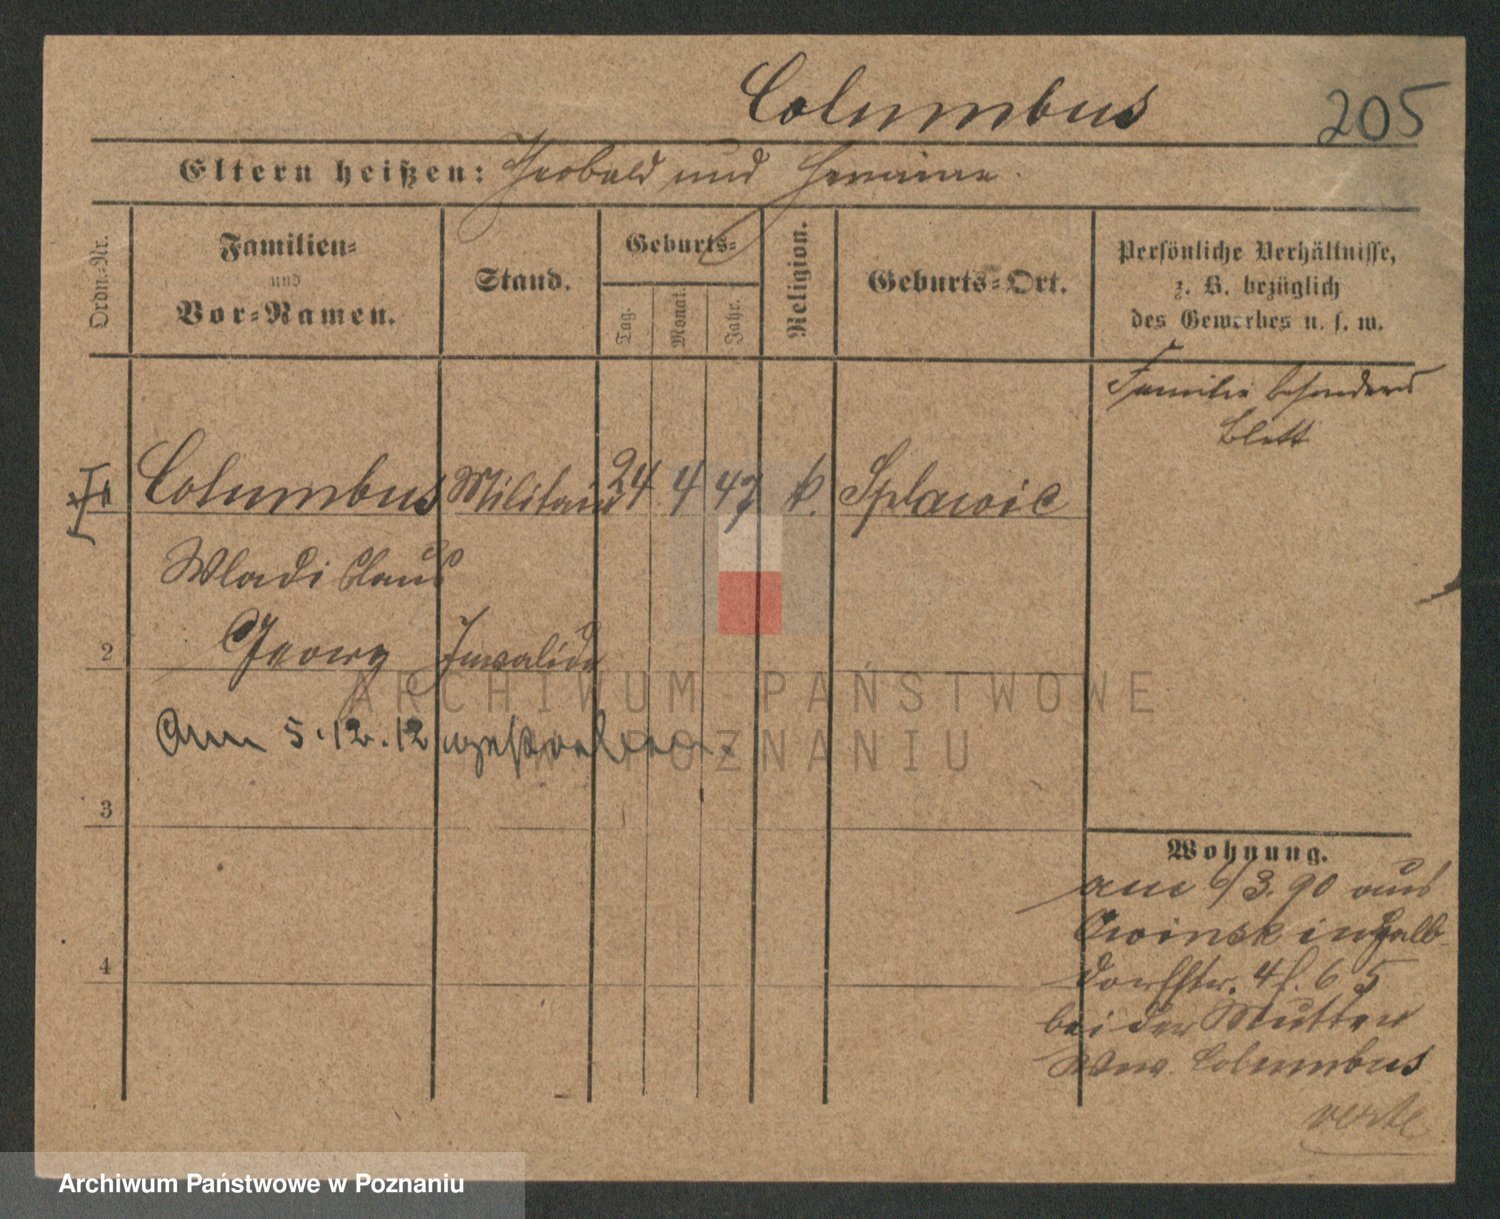 Columbus
205
Eltern heißen: Theobald und Hermine.
Ordn.-Nr.
Familien-
und
Vor-Namen.
Stand.
Geburts-
Tag.
Monat.
Jahr.
Religion.
Geburts-Ort.
Persönliche Verhältnisse,
z. B. bezüglich
des Gewerbes u. s. w.
Familie besonderes
Blatt
1 Columbus Militair 24 4 47 k. Splawie
Wladislaus
2 Georg Invalide
Am 5.12.12
3
4
Wohnung.
am 6/3.90 aus
Owinsk in Halb-
dorfstr. 4 f. 6 5
bei der Mutter
Wwe. Columbus
verte
ARCHIWUM PAŃSTWOWE
W POZNANIU
Archiwum Państwowe w Poznaniu